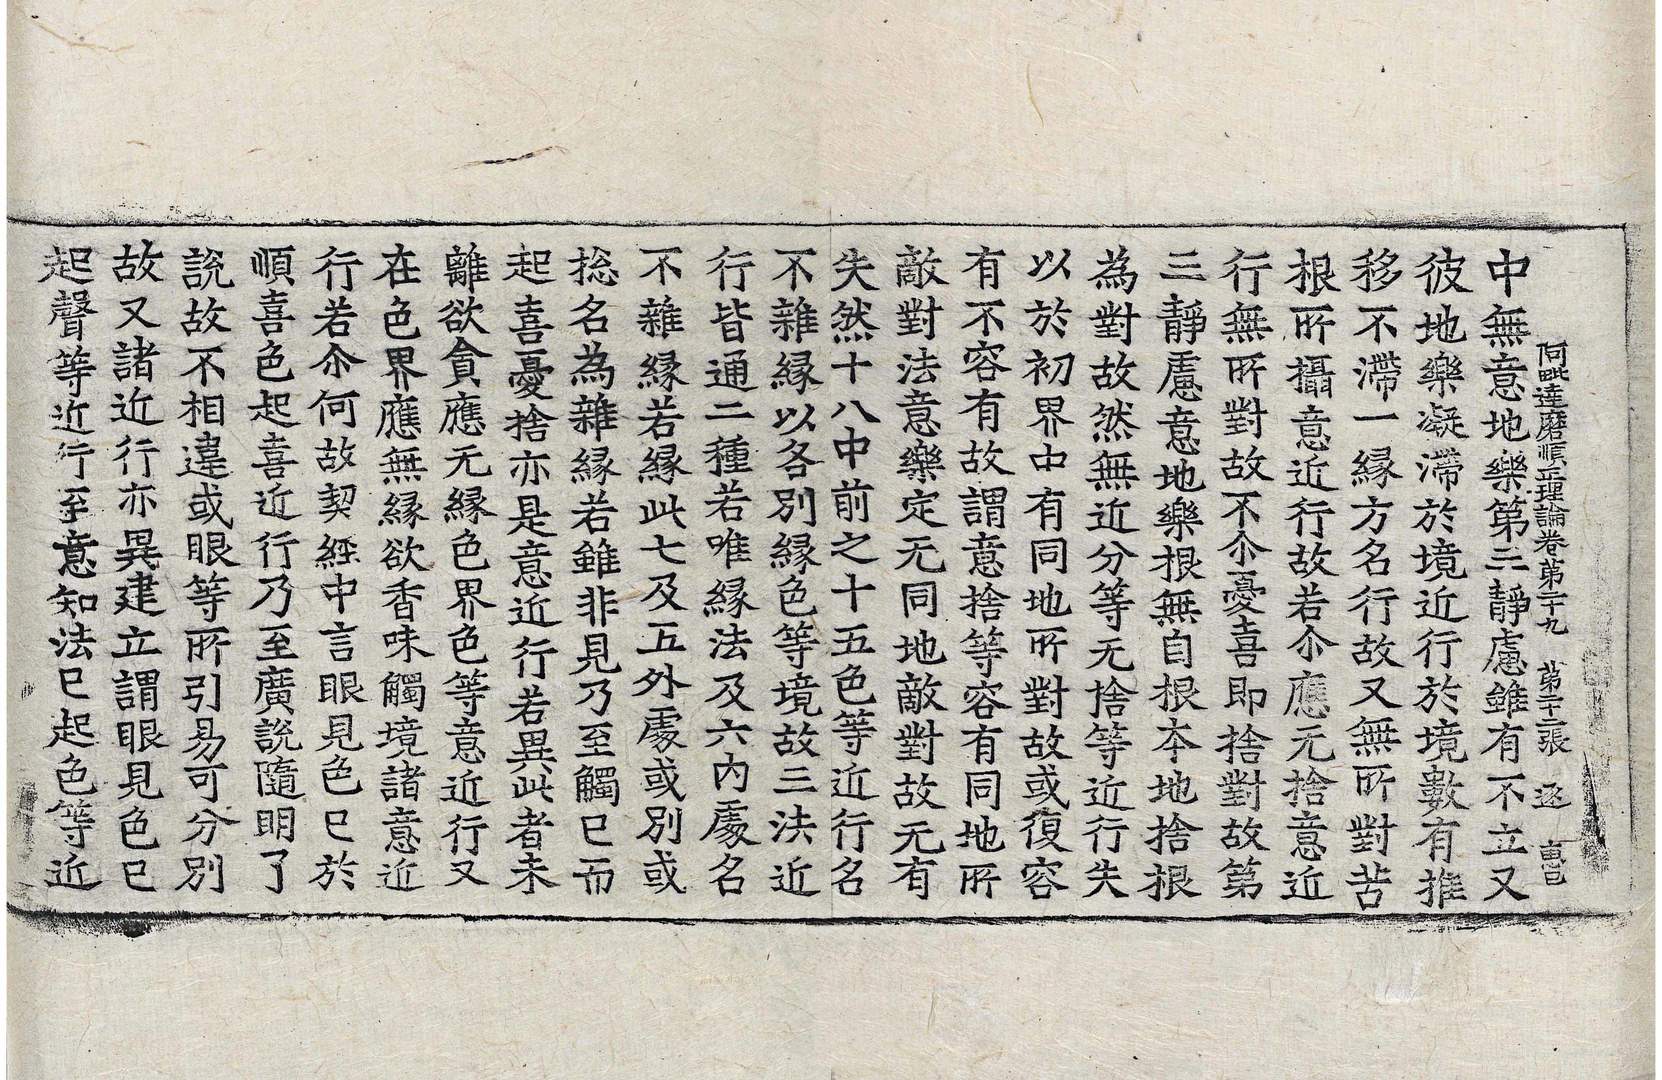 阿毗達磨順正理論卷第二十九 第十二張 逐
中無意地樂第三靜慮雖有不立又
彼地樂凝滯於境近行於境數有推
移不滯一縁方名行故又無所對苦
根所攝意近行故若尒應无捨意近
行無所對故不尒憂喜即捨對故第
三靜慮意地樂根無自根本地捨根
為對故然無近分等无捨等近行失
以於初界中有同地所對故或復容
有不容有故謂意捨等容有同地所
敵對法意樂定无同地敵對故无有
失然十八中前之十五色等近行名
不雜縁以各別縁色等境故三法近
行皆通二種若唯縁法及六內處名
不雜縁若縁此七及五外處或別或
捴名為雜縁若雖非見乃至觸已而
起喜憂捨亦是意近行若異此者未
離欲貪應无縁色界色等意近行又
在色界應無縁欲香味觸境諸意近
行若尒何故契經中言眼見色已於
順喜色起喜近行乃至廣說隨明了
說故不相違或眼等所引易可分別
故又諸近行亦異建立謂眼見色已
起聲等近行至意知法已起色等近